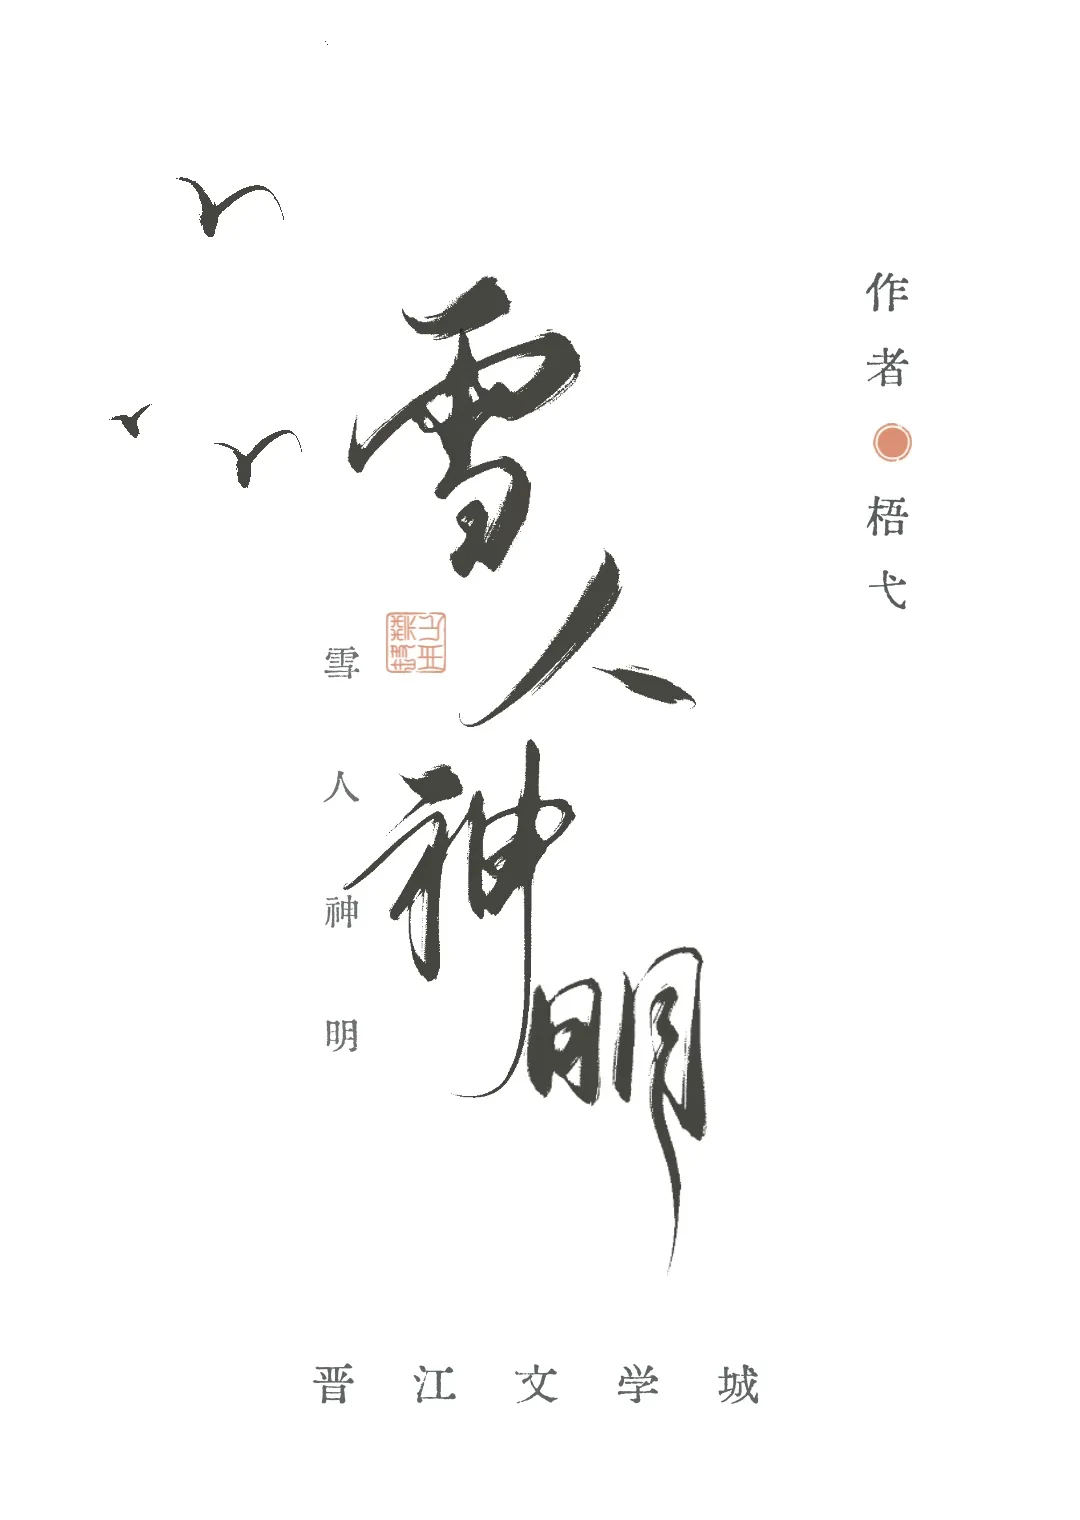 作者
梧弋
雪人神明
雪人神明
晋江文学城